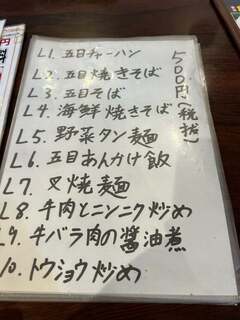 500円(税抜)
L1. 五目チャーハン
L2. 五目焼きそば
L3. 五目そば
L4. 海鮮焼きそば
L5. 野菜タン麺
L6. 五目あんかけ飯
L7. 叉焼麺
L8. 牛肉とニンニク炒め
L9. 牛バラ肉の醤油煮
10. トウショウ炒め
円